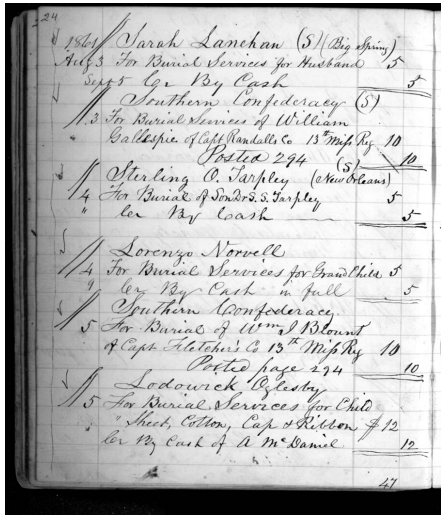 24
1861 Sarah Lanehan (S) (Big Spring)
Aug 3 For Burial Services for Husband 5
Sept 5 Cr By Cash 5
Southern Confederacy (S)
3 For Burial Services of William
Gallespie of Capt Randalls Co 13th Miss Reg 10
Posted 294 10
Sterling O. Tarpley (S) (New Orleans)
4 For Burial of Son Dr S. S. Tarpley 5
" Cr By Cash 5
Lorenzo Norvell
4 For Burial Services for Grand Child 5
" Cr By Cash in full 5
Southern Confederacy
5 For Burial of Wm J Blount
of Capt Fletcher's Co 13th Miss Reg 10
Posted page 294 10
Lodowick Oglesby
5 For Burial Services for Child
" Sheet, Cotton, Cap & Ribbon $12
Cr By Cash of A McDaniel 12
47